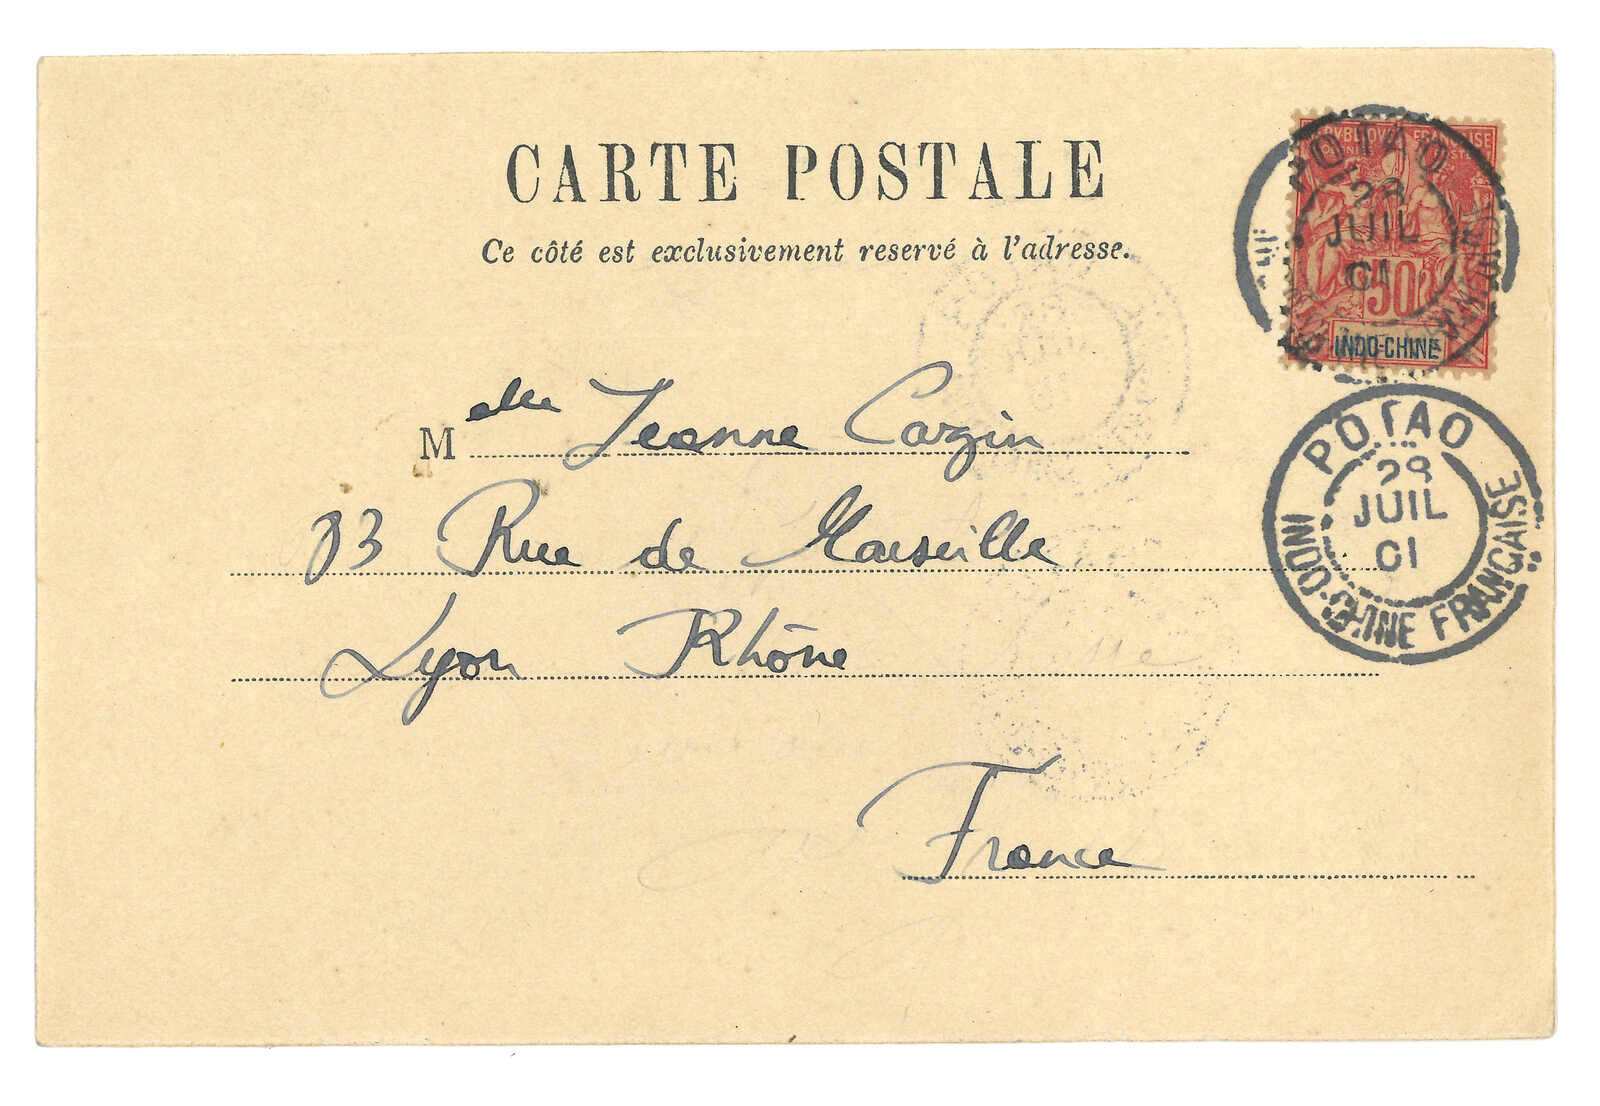 CARTE POSTALE
Ce côté est exclusivement reservé à l'adresse.
POTAO
28
JUIL
01
INDO-CHINE
POTAO
28
JUIL
01
INDO-CHINE FRANÇAISE
Melle Jeanne Cazin
33 Rue de Marseille
Lyon Rhône
France